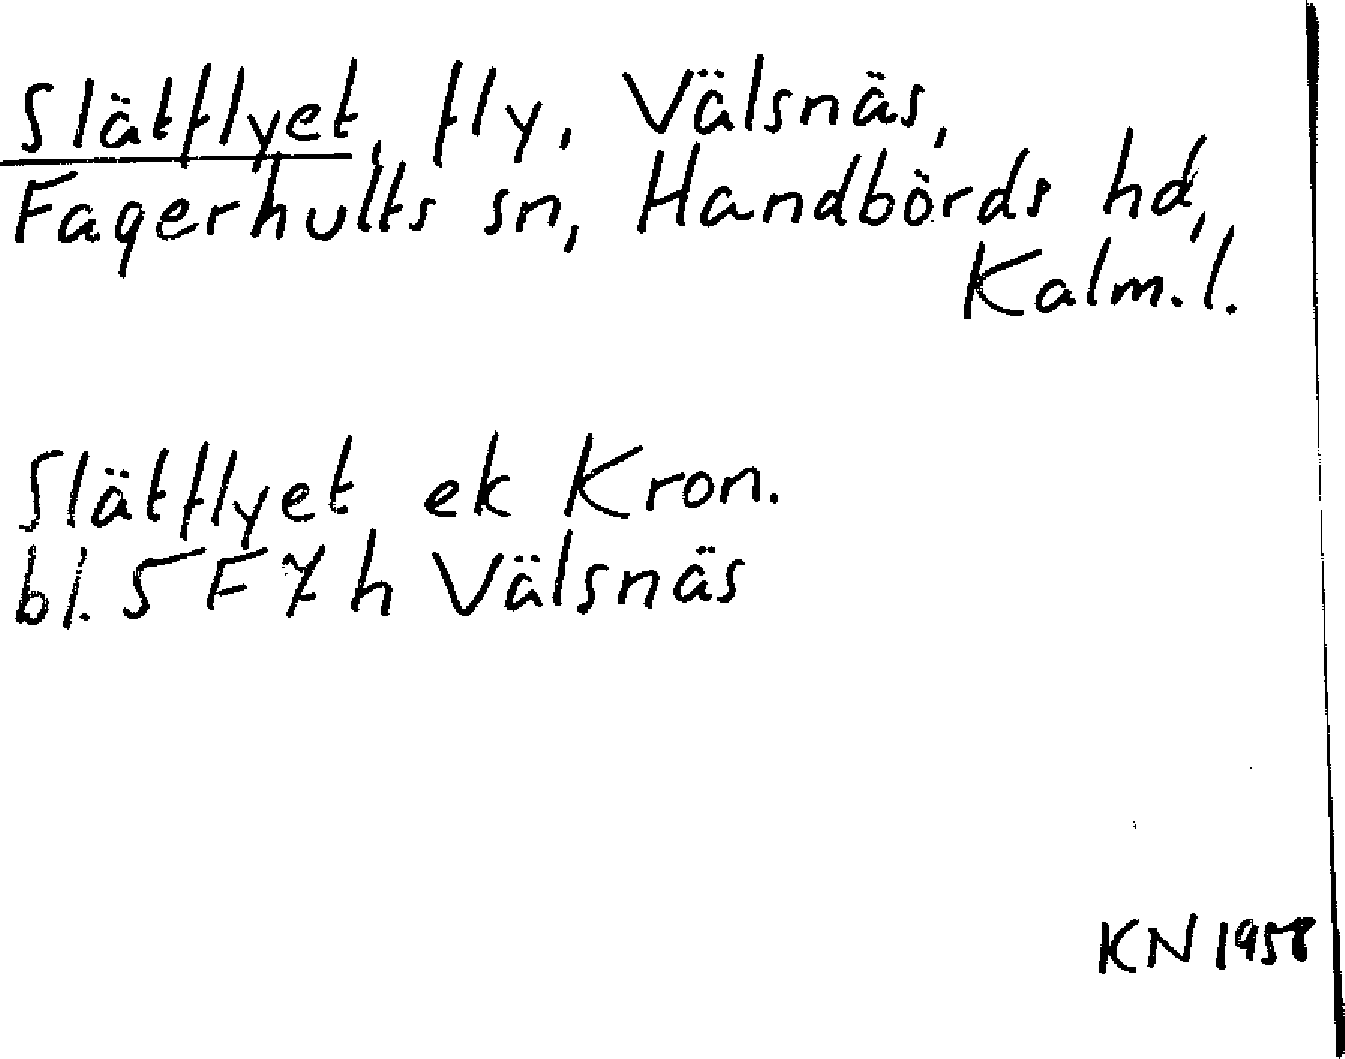 Slätflyet, fly, Välsnäs,
Fagerhults sn, Handbörds hd,
Kalm. l.
Slätflyet ek Kron.
bl. 5 F 7 h Välsnäs
KN 1958